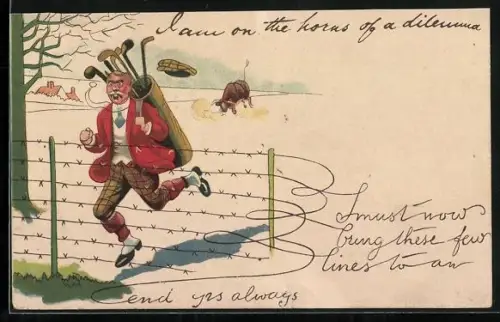 I am on the horns of a dilemma
I must now
bring these few
lines to an
end yrs always